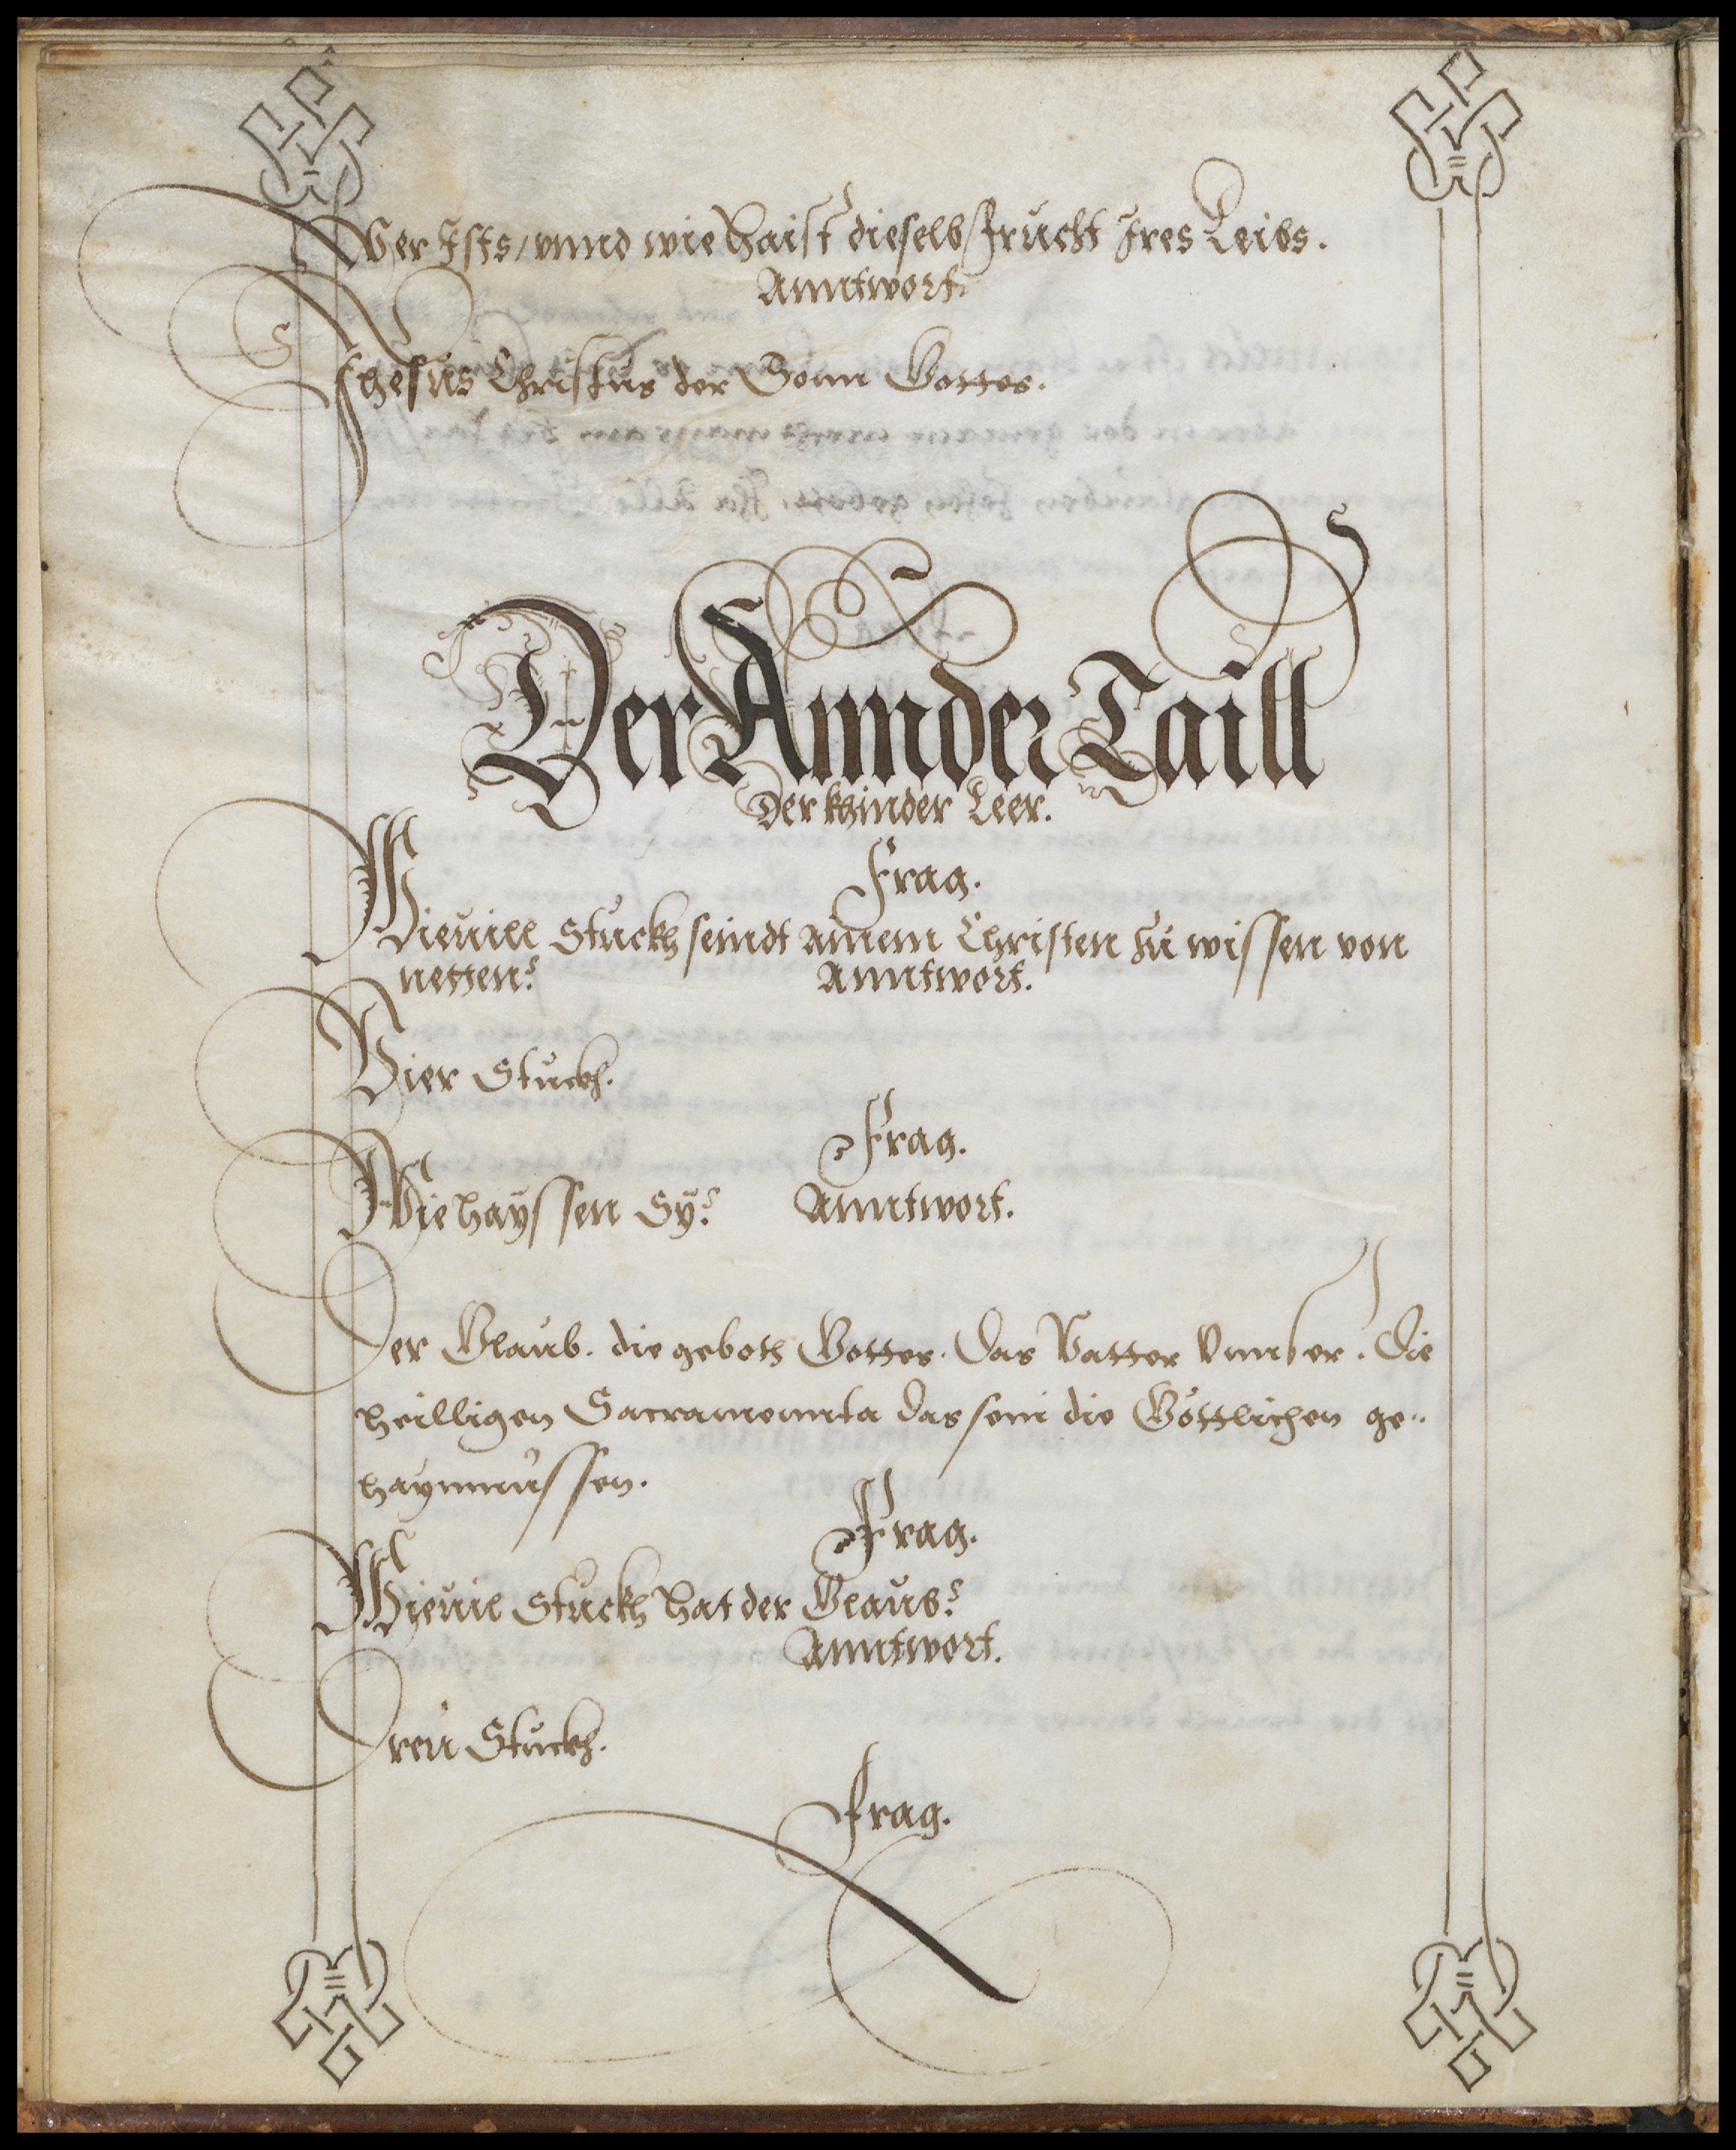 Wer Ists / vnnd wie haist dieselb Frucht Ires Leibs.
Anntwort.
Jhesus Christus der Sonn Gottes.
Der Annder Taill
Der khinder Leer.
Frag.
Wieuill Stuckh seindt ainem Christen zu wissen von
netten?
Anntwort.
Vier Stuckh.
Frag.
Wie hayssen Sÿ?
Anntwort.
Der Glaub. die geboth Gottes. Das Vatter Vnnser. Die
heilligen Sacramennta das sein die Göttlichen ge„
haymnussen.
Frag.
Wieuil Stuckh hat der Glaub?
Anntwort.
Dreu Stuckh.
Frag.